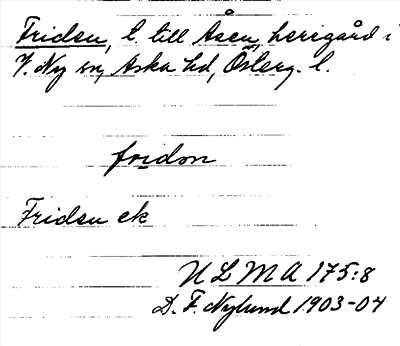 Fridsu, t. till Åsen, herrgård i
V. Ny sn, Aska hd, Österg. l.
fridon
Fridsu ek
ULMA 175:8
D. F. Nylund 1903-04